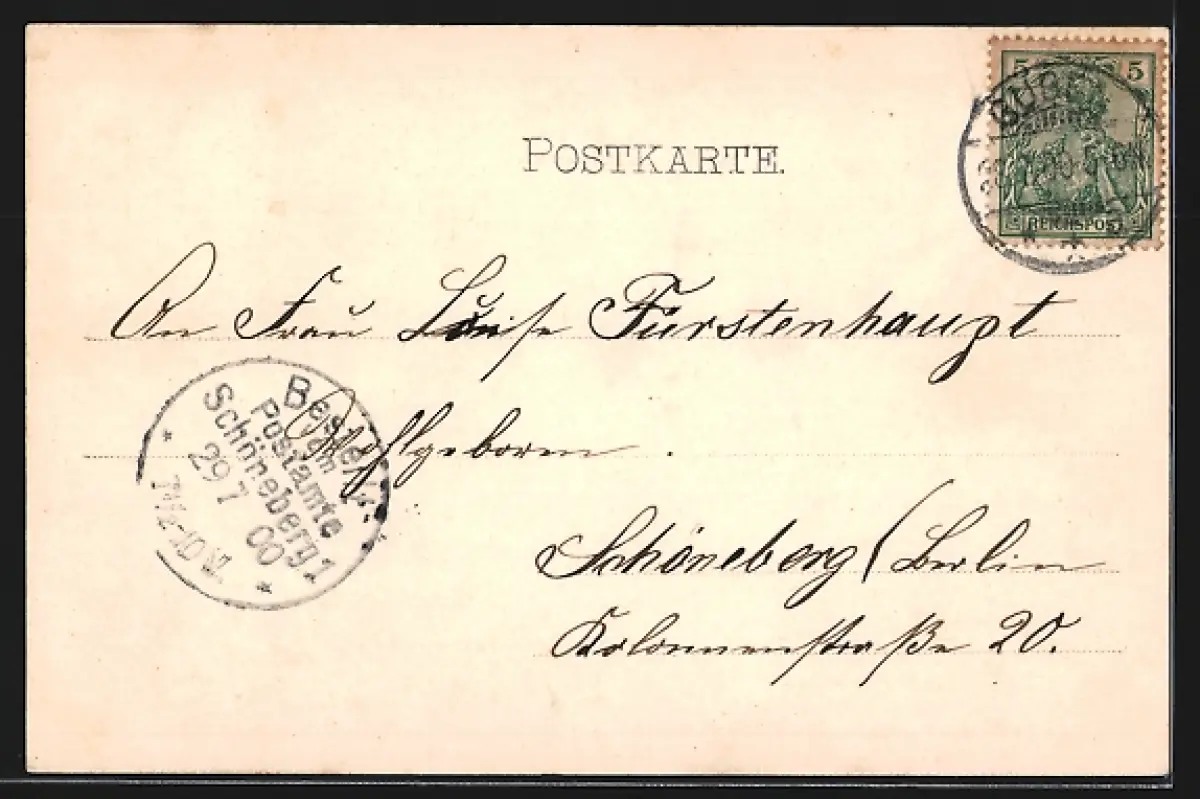 POSTKARTE.
5 5
GUBEN
REICHSPOST
An Frau Luise Fürstenhaupt
Wohlgeboren.
Bestellt
vom
Postamte
Schöneberg 1
29 7 00
7½-10 V.
Schöneberg/Berlin
Kolonnenstraße 20.